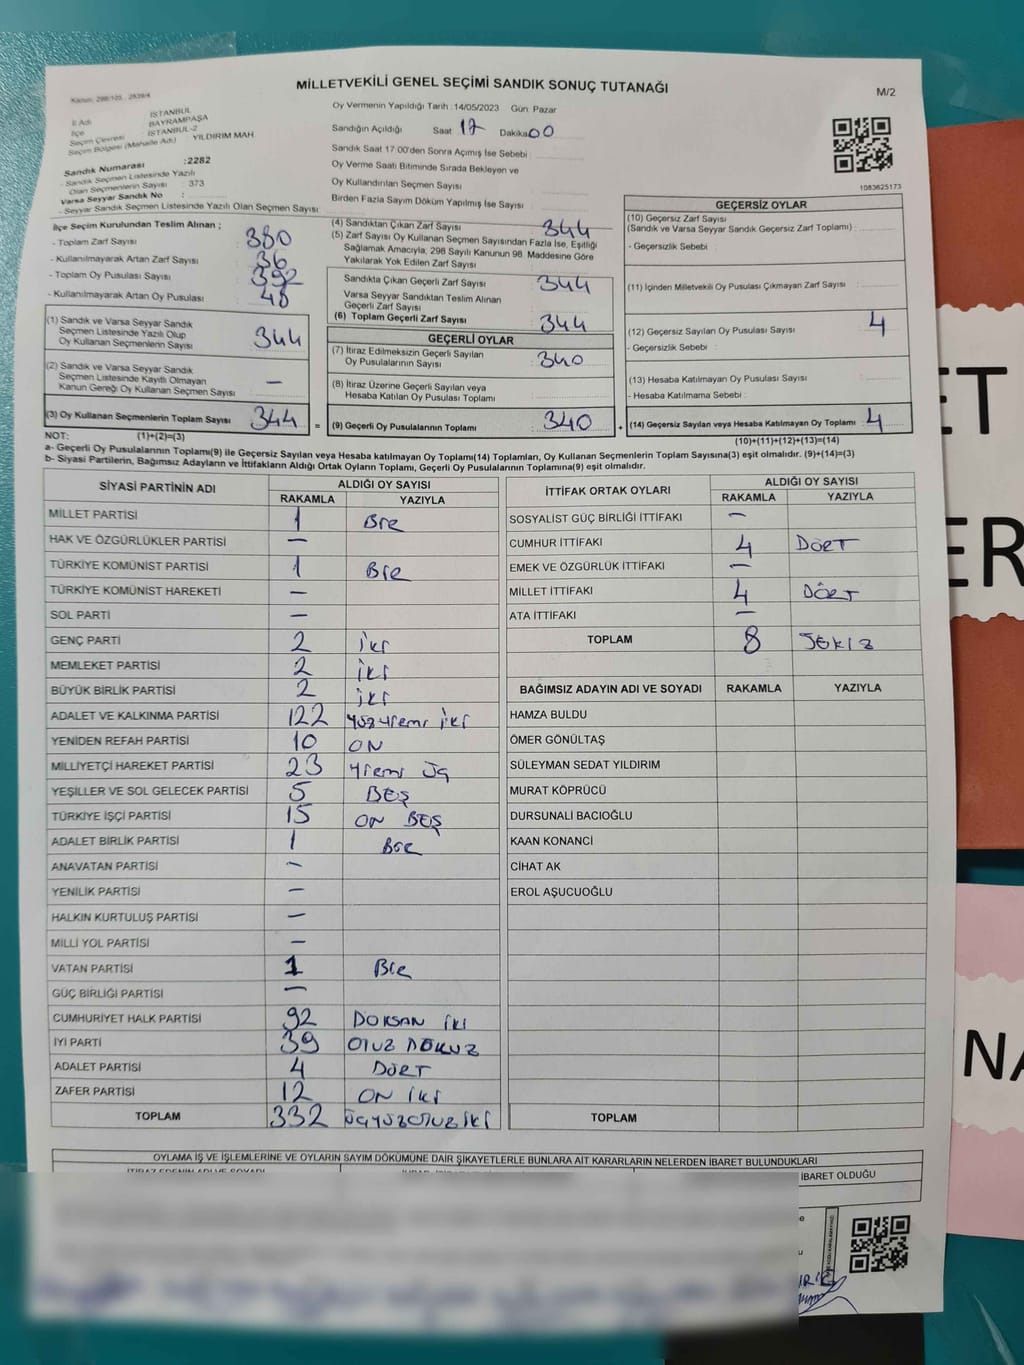 MİLLETVEKİLİ GENEL SEÇİMİ SANDIK SONUÇ TUTANAĞI
M/2
Kanun: 298/105, 2839/4
İl Adı İSTANBUL
İlçe BAYRAMPAŞA
Seçim Çevresi İSTANBUL-2
Seçim Bölgesi (Mahalle Adı) YILDIRIM MAH.
Sandık Numarası :2282
- Sandık Seçmen Listesinde Yazılı
Olan Seçmenlerin Sayısı : 373
Varsa Seyyar Sandık No :
- Seyyar Sandık Seçmen Listesinde Yazılı Olan Seçmen Sayısı
Oy Vermenin Yapıldığı Tarih :14/05/2023 Gün: Pazar
Sandığın Açıldığı Saat 17 Dakika 00
Sandık Saat 17.00'den Sonra Açımış İse Sebebi :
Oy Verme Saati Bitiminde Sırada Bekleyen ve
Oy Kullandırılan Seçmen Sayısı :
Birden Fazla Sayım Döküm Yapılmış İse Sayısı :
1083625173
İlçe Seçim Kurulundan Teslim Alınan ;
- Toplam Zarf Sayısı : 380
- Kullanılmayarak Artan Zarf Sayısı : 36
- Toplam Oy Pusulası Sayısı : 392
- Kullanılmayarak Artan Oy Pusulası : 48
(1) Sandık ve Varsa Seyyar Sandık
Seçmen Listesinde Yazılı Olup
Oy Kullanan Seçmenlerin Sayısı : 344
(2) Sandık ve Varsa Seyyar Sandık
Seçmen Listesinde Kayıtlı Olmayan
Kanun Gereği Oy Kullanan Seçmen Sayısı : —
(3) Oy Kullanan Seçmenlerin Toplam Sayısı : 344 =
(4) Sandıktan Çıkan Zarf Sayısı : 344
(5) Zarf Sayısı Oy Kullanan Seçmen Sayısından Fazla İse, Eşitliği
Sağlamak Amacıyla, 298 Sayılı Kanunun 98. Maddesine Göre
Yakılarak Yok Edilen Zarf Sayısı :
Sandıkta Çıkan Geçerli Zarf Sayısı : 344
Varsa Seyyar Sandıktan Teslim Alınan
Geçerli Zarf Sayısı :
(6) Toplam Geçerli Zarf Sayısı : 344
GEÇERLİ OYLAR
(7) İtiraz Edilmeksizin Geçerli Sayılan
Oy Pusulalarının Sayısı : 340
(8) İtiraz Üzerine Geçerli Sayılan veya
Hesaba Katılan Oy Pusulası Toplamı :
(9) Geçerli Oy Pusulalarının Toplamı : 340 +
GEÇERSİZ OYLAR
(10) Geçersiz Zarf Sayısı
(Sandık ve Varsa Seyyar Sandık Geçersiz Zarf Toplamı) :
- Geçersizlik Sebebi :
(11) İçinden Milletvekili Oy Pusulası Çıkmayan Zarf Sayısı :
(12) Geçersiz Sayılan Oy Pusulası Sayısı : 4
- Geçersizlik Sebebi :
(13) Hesaba Katılmayan Oy Pusulası Sayısı :
- Hesaba Katılmama Sebebi :
(14) Geçersiz Sayılan veya Hesaba Katılmayan Oy Toplamı : 4
NOT: (1)+(2)=(3)
(10)+(11)+(12)+(13)=(14)
a- Geçerli Oy Pusulalarının Toplamı(9) ile Geçersiz Sayılan veya Hesaba katılmayan Oy Toplamı(14) Toplamları, Oy Kullanan Seçmenlerin Toplam Sayısına(3) eşit olmalıdır. (9)+(14)=(3)
b- Siyasi Partilerin, Bağımsız Adayların ve İttifakların Aldığı Ortak Oyların Toplamı, Geçerli Oy Pusulalarının Toplamına(9) eşit olmalıdır.
SİYASİ PARTİNİN ADI ALDIĞI OY SAYISI
RAKAMLA YAZIYLA
MİLLET PARTİSİ 1 Bir
HAK VE ÖZGÜRLÜKLER PARTİSİ —
TÜRKİYE KOMÜNİST PARTİSİ 1 Bir
TÜRKİYE KOMÜNİST HAREKETİ —
SOL PARTİ —
GENÇ PARTİ 2 İki
MEMLEKET PARTİSİ 2 İki
BÜYÜK BİRLİK PARTİSİ 2 İki
ADALET VE KALKINMA PARTİSİ 122 Yüzyirmi iki
YENİDEN REFAH PARTİSİ 10 ON
MİLLİYETÇİ HAREKET PARTİSİ 23 Yirmi üç
YEŞİLLER VE SOL GELECEK PARTİSİ 5 BEŞ
TÜRKİYE İŞÇİ PARTİSİ 15 ON BEŞ
ADALET BİRLİK PARTİSİ 1 Bir
ANAVATAN PARTİSİ —
YENİLİK PARTİSİ —
HALKIN KURTULUŞ PARTİSİ —
MİLLİ YOL PARTİSİ —
VATAN PARTİSİ 1 Bir
GÜÇ BİRLİĞİ PARTİSİ —
CUMHURİYET HALK PARTİSİ 92 DOKSAN İKİ
İYİ PARTİ 39 OTUZ DOKUZ
ADALET PARTİSİ 4 DÖRT
ZAFER PARTİSİ 12 ON İKİ
TOPLAM 332 ÜÇYÜZOTUZİKİ
İTTİFAK ORTAK OYLARI ALDIĞI OY SAYISI
RAKAMLA YAZIYLA
SOSYALİST GÜÇ BİRLİĞİ İTTİFAKI —
CUMHUR İTTİFAKI 4 DÖRT
EMEK VE ÖZGÜRLÜK İTTİFAKI —
MİLLET İTTİFAKI 4 DÖRT
ATA İTTİFAKI —
TOPLAM 8 SEKİZ
BAĞIMSIZ ADAYIN ADI VE SOYADI RAKAMLA YAZIYLA
HAMZA BULDU
ÖMER GÖNÜLTAŞ
SÜLEYMAN SEDAT YILDIRIM
MURAT KÖPRÜCÜ
DURSUNALİ BACIOĞLU
KAAN KONANCİ
CİHAT AK
EROL AŞUCUOĞLU
TOPLAM
OYLAMA İŞ VE İŞLEMLERİNE VE OYLARIN SAYIM DÖKÜMÜNE DAİR ŞİKAYETLERLE BUNLARA AİT KARARLARIN NELERDEN İBARET BULUNDUKLARI
İTİRAZ EDENİN ADI VE SOYADI
İBARET OLDUĞU
ET
ER
NA